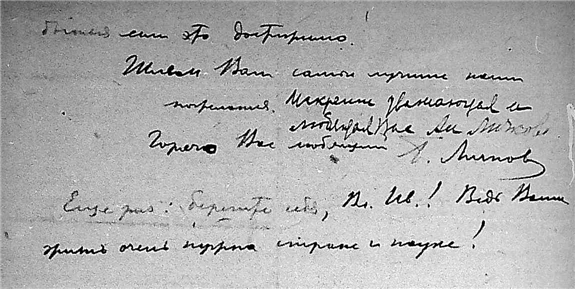 если это достижимо!
Шлем Вам самые лучшие наши
пожелания. Искренне уважающая и
любящая Вас Ан Личкова
Горячо Вас любящий Личков
Еще раз: берегите себя, Вл. Ив.! Ведь Ваша
жизнь очень нужна стране и науке!